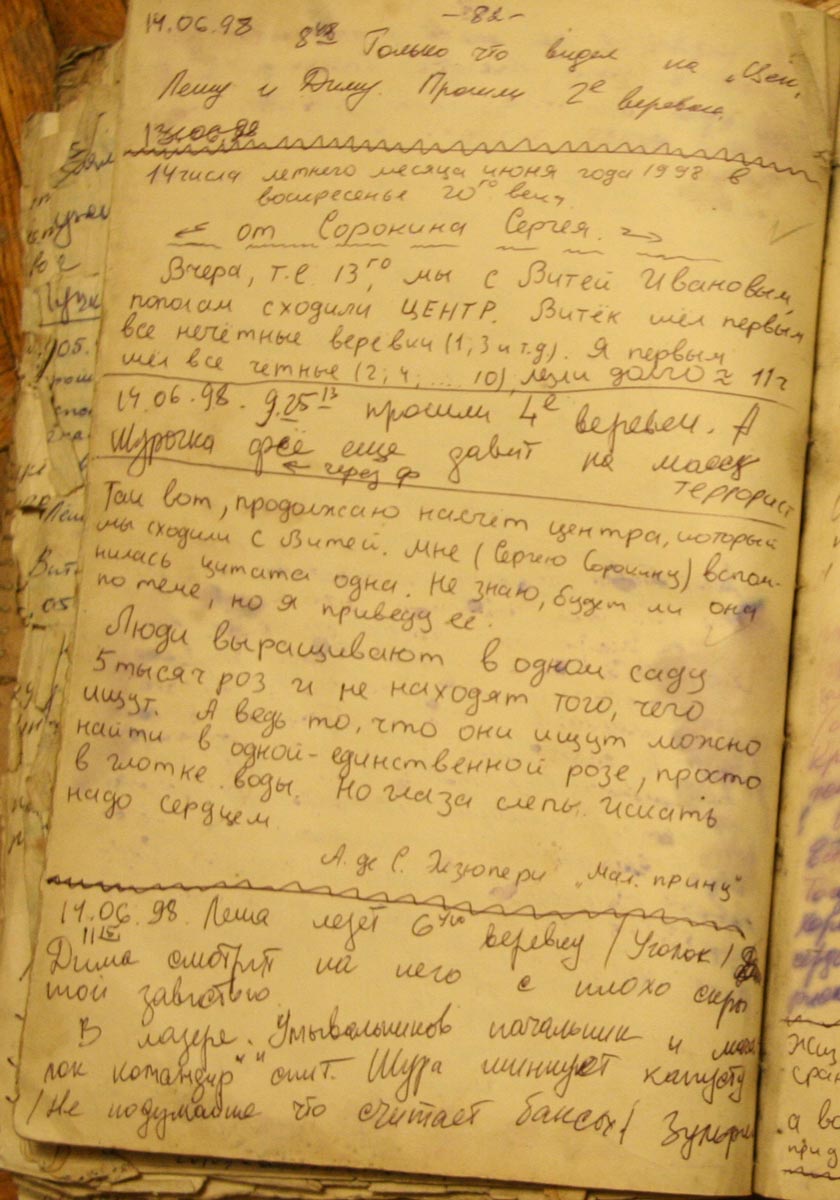 - 82 -
14.06.98
8 48 Только что видел на „Цен,
Лешу и Диму. Прошли 2е веревки.
14числа летнего месяца июня года 1998 в
воскресенье 20го век,
от Сорокина Сергея.
Вчера, т.е 13го, мы с Витей Ивановым,
пополам сходили ЦЕНТР. Витёк шёл первым
все нечётные верёвки (1,3 и т.д). Я первым
шёл все четные (2, 4, ... 10), лезли долго ≈ 11ч
14.06.98. 9.25 13 прошли 4е веревки. А
Шурочка фсё еще давит на массу
← через ф
террорист
Так вот, продолжаю насчёт центра, который
мы сходили с Витей. Мне (Сергею Сорокину) вспом-
нилась цитата одна. Не знаю, будет ли она
по теме, но я приведу её.
Люди выращивают в одном саду
5 тысяч роз и не находят того, чего
ищут. А ведь то, что они ищут можно
найти в одной-единственной розе, просто
в глотке воды. Но глаза слепы. Искать
надо сердцем.
А. де С. Экзюпери „Мал. принц"
14.06.98. Леша лезет 6ую веревку /Уголок/
Дима смотрит на него с плохо скры
той завистью.
В лагере. „Умывальников начальник и моча
лок командир" спит. Шура шинкует капусту
/Не подумайте что считает баксы/